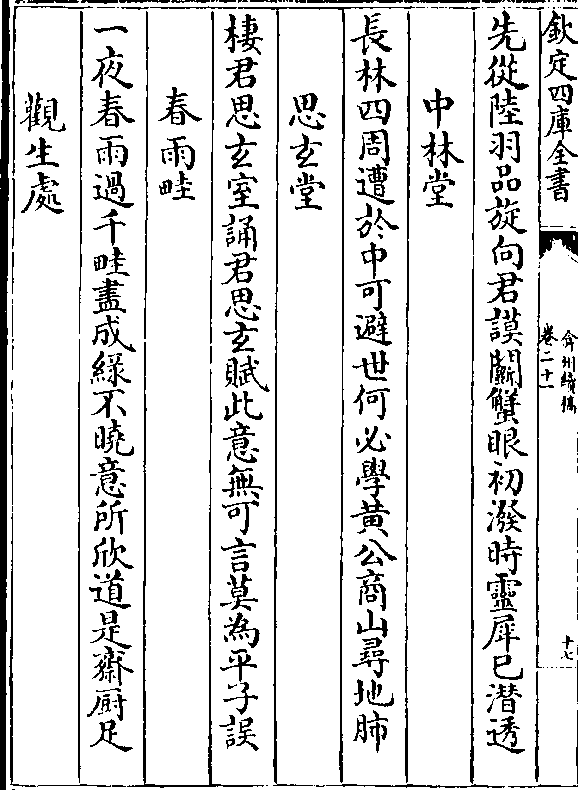 欽定四庫全書
弇州續稿
卷二十一
十七
先從陸羽品旋向君謨闘蟹眼初潑時靈犀已潛透
中林堂
長林四周遭於中可避世何必學黃公商山尋地肺
思玄堂
棲君思玄室誦君思玄賦此意無可言莫為平子誤
春雨畦
一夜春雨過千畦盡成緑不曉意所欣道是齋厨足
觀生處